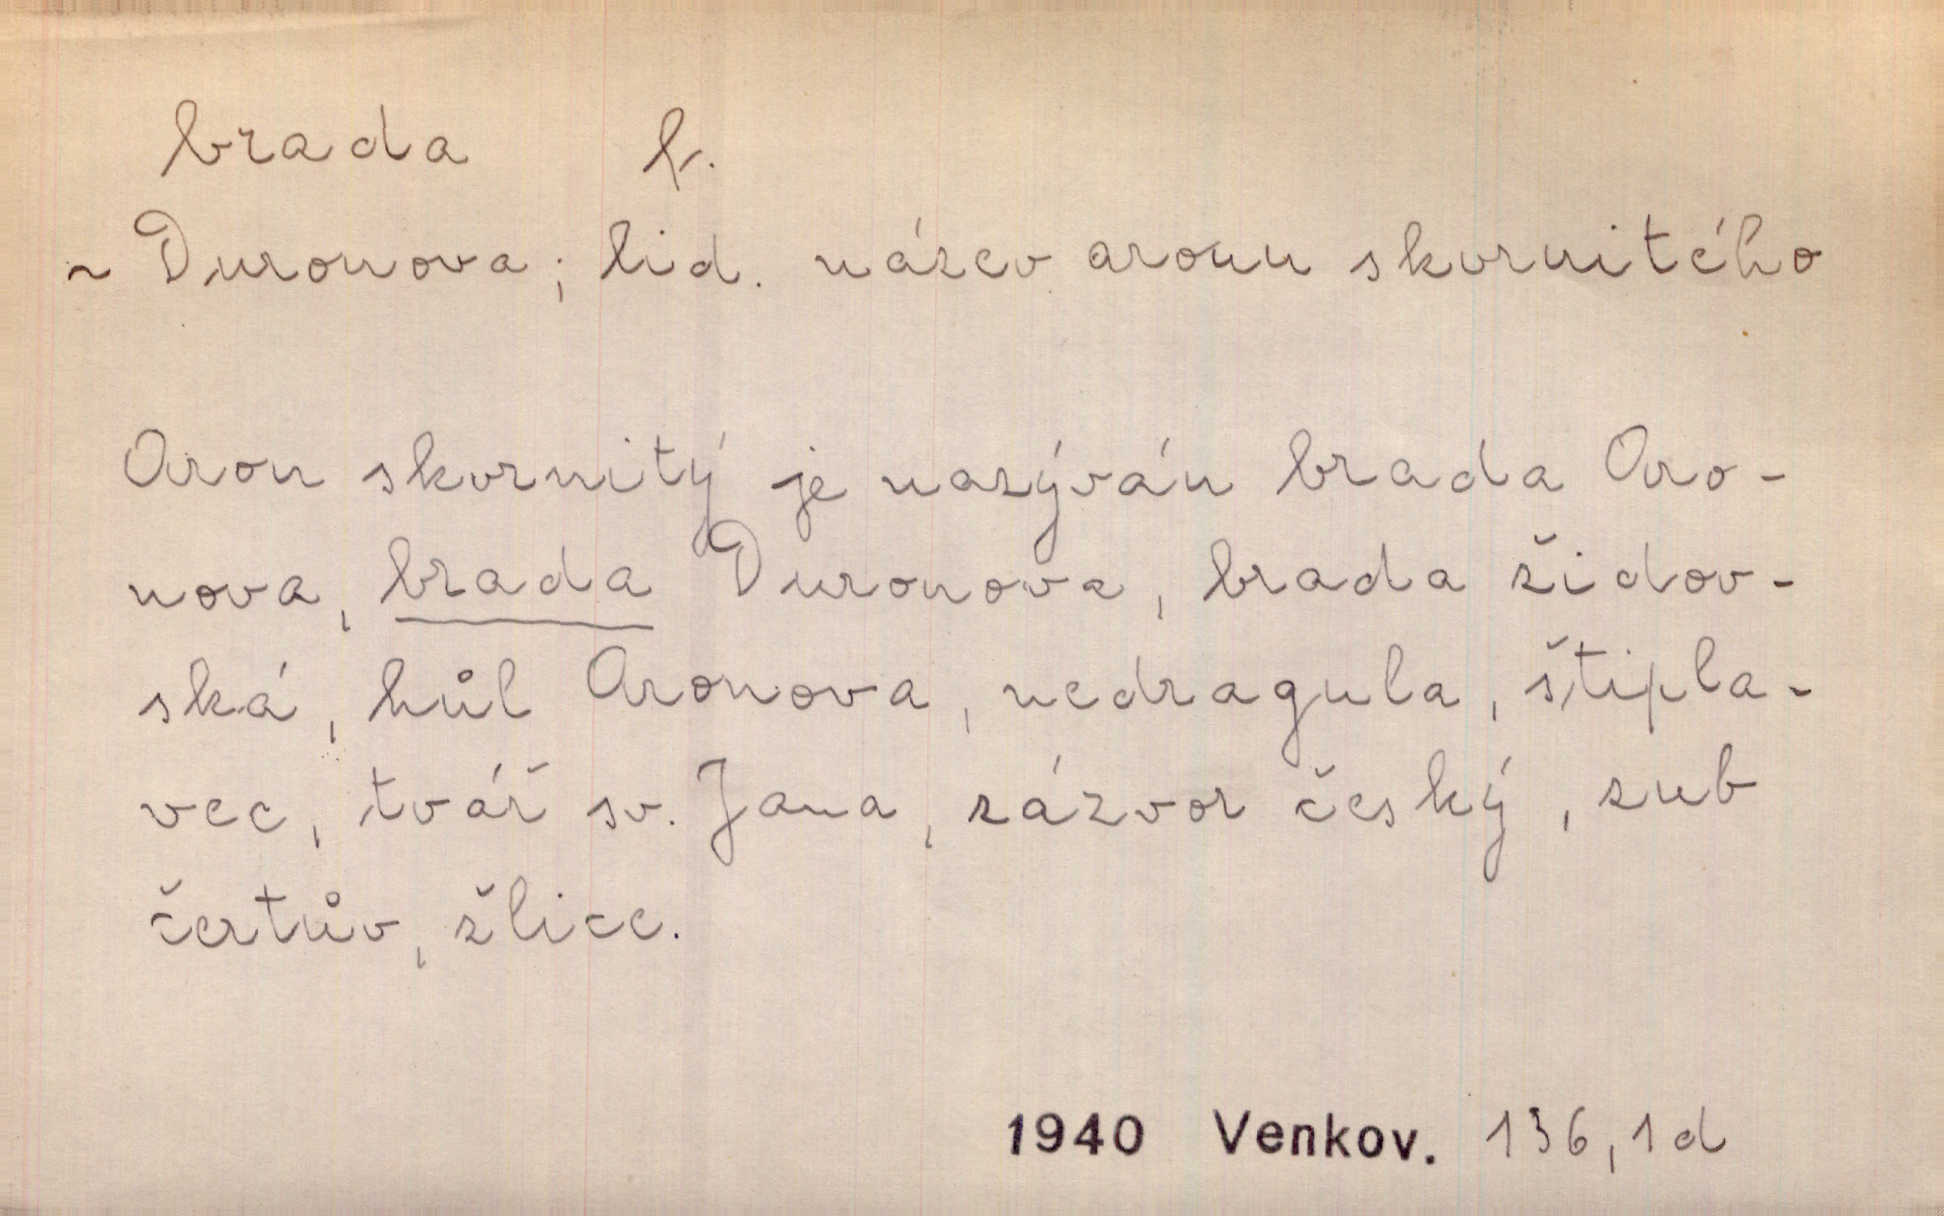 brada f.
~ Duronova; lid. název aronu skvrnitého
Aron skvrnitý je nazýván brada Aro-
nova, brada Duronova, brada židov-
ská, hůl Aronova, nedragula, štipla-
vec, tvář sv. Jana, zázvor český, zub
čertův, žlice.
1940 Venkov. 136,1d